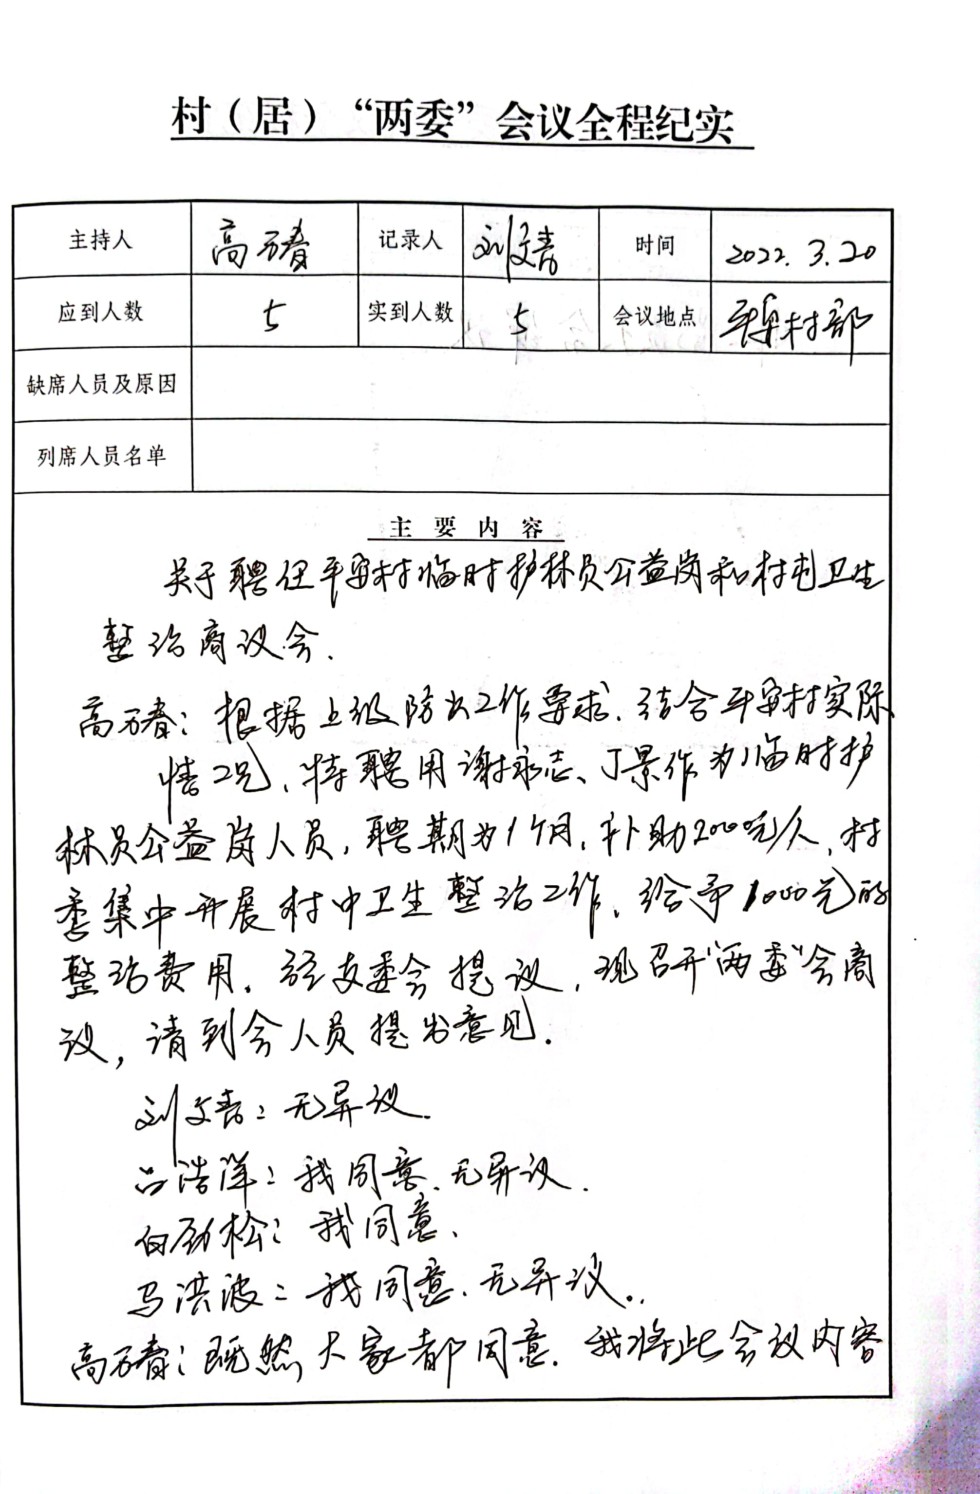 村（居）“两委”会议全程纪实
主持人 高万春 记录人 刘文青 时间 2022.3.20
应到人数 5 实到人数 5 会议地点 平安村部
缺席人员及原因
列席人员名单
主要内容
关于聘任平安村临时护林员公益岗和村屯卫生
整治商议会.
高万春：根据上级防火工作要求.结合平安村实际
情况,特聘用谢永志、丁景作为临时护
林员公益岗人员,聘期为1个月,补助2000元/人,村
委集中开展村中卫生整治工作,给予1000元的
整治费用.经支委会提议,现召开“两委”会商
议,请到会人员提出意见.
刘文青：无异议.
吕浩洋：我同意.无异议.
白劲松：我同意.
马洪波：我同意.无异议.
高万春：既然大家都同意.我将此会议内容